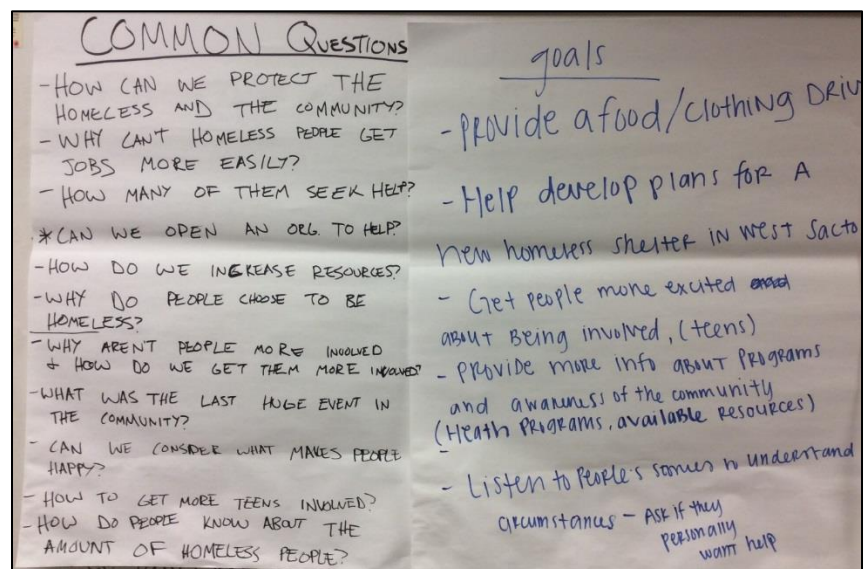 COMMON QUESTIONS
- HOW CAN WE PROTECT THE
HOMELESS AND THE COMMUNITY?
- WHY CAN'T HOMELESS PEOPLE GET
JOBS MORE EASILY?
- HOW MANY OF THEM SEEK HELP?
* CAN WE OPEN AN ORG. TO HELP?
- HOW DO WE INCREASE RESOURCES?
- WHY DO PEOPLE CHOOSE TO BE
HOMELESS?
- WHY AREN'T PEOPLE MORE INVOLVED
+ HOW DO WE GET THEM MORE INVOLVED?
- WHAT WAS THE LAST HUGE EVENT IN
THE COMMUNITY?
- CAN WE CONSIDER WHAT MAKES PEOPLE
HAPPY?
- HOW TO GET MORE TEENS INVOLVED?
- HOW DO PEOPLE KNOW ABOUT THE
AMOUNT OF HOMELESS PEOPLE?
goals
- PROVIDE a food/clothing DRIV
- Help develop plans for A
new homeless shelter in west Sacto
- Get people more excited
about Being involved, (teens)
- PROVIDE more info about Programs
and awareness of the community
(Heath Programs, available Resources)
-
- Listen to People's stories to understand
circumstances - Ask if they
personally
want help